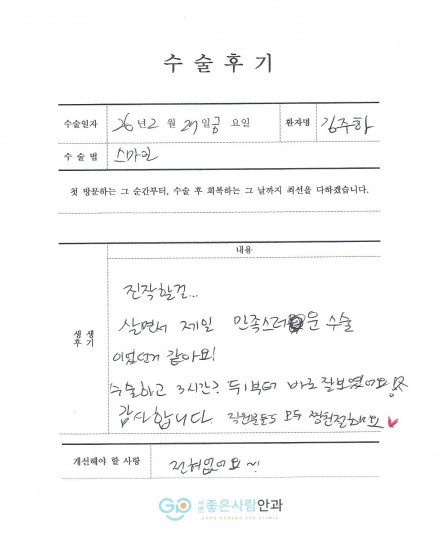 수 술 후 기
수술일자 26년 2 월 27일 금 요일 환자명 김주하
수 술 법 스마일
첫 방문하는 그 순간부터, 수술 후 회복하는 그 날까지 최선을 다하겠습니다.
내용
생 생
후 기
진작할걸...
살면서 제일 만족스러운 수술
이었던거 같아요!
수술하고 3시간? 뒤부터 바로 잘보였어요!
감사합니다. 직원분들도 모두 짱친절해요
개선해야 할 사항 전혀없어요~!
좋은사람안과
GOOD PERSON EYE CLINIC